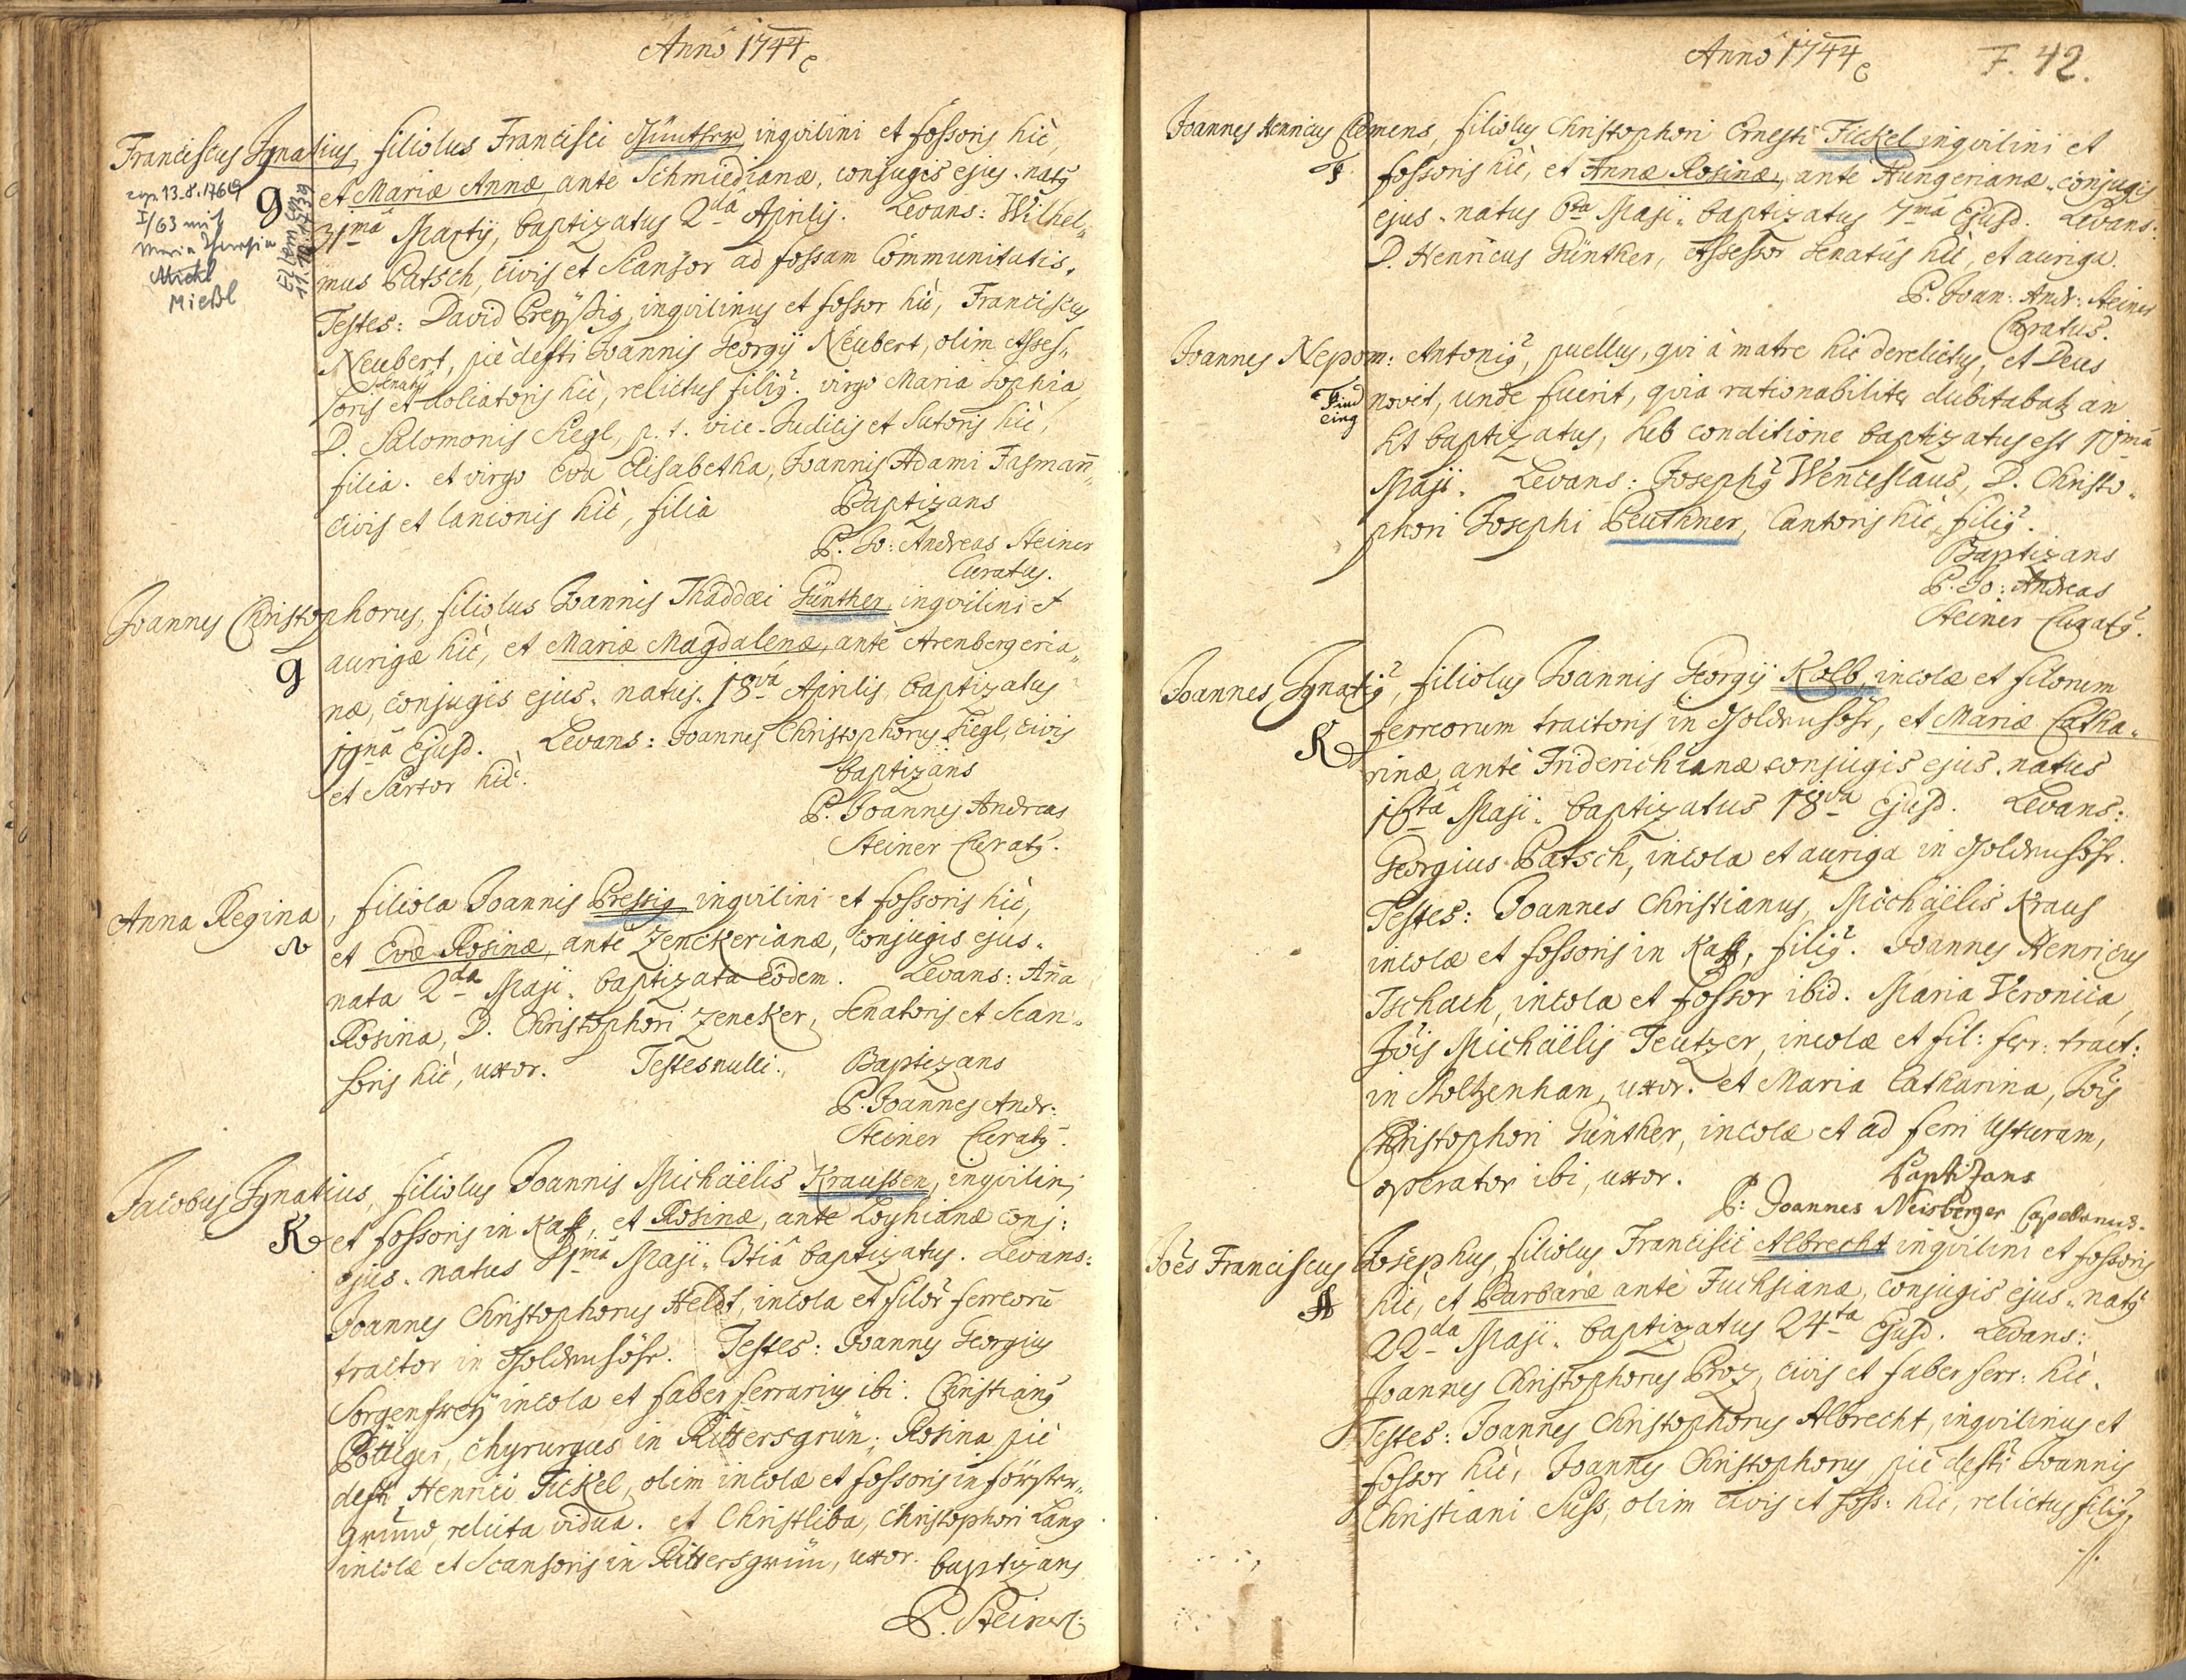 Anno 1744
Franciscus Ignatius, filiolus Francisci Günther, inqvilini et fossoris hic,
cop. 13.8.1769
I/63 mit
Maria Theresia
Michl
Mießl
Eltern cop.
11.10.1739
g et Mariæ Annæ, ante Schmiedianæ, conjugis ejus. natq
31mâ Martij, baptizatus 2dâ Aprilis. Levans: Wilhel„
mus Patsch, civis et Scansor ad fossam Communitatis.
Testes: David Preyßig, inqvilinus et fossor hic, Franciscus
Neubert, pie defti Joannis Georgij Neubert, olim Asses„
soris Senatq et doliatoris hic, relictus filiq. virgo Maria Sophia
D. Salomonis Siegl, p. t. vice-Judicis et Sutoris hic,
filia. et virgo Eva Elisabetha, Joannis Adami Fasmañ
civis et lanionis hic, filia
Baptizans
P. Jo: Andreas Steiner
Curatus.
Joannes Christophorus, filiolus Joannis Thaddæi Günther, inqvilini et
g aurigæ hic, et Mariæ Magdalenæ, ante Arenbergeria„
næ, conjugis ejus. natus. 18vâ Aprilis, baptizatus
19nâ Ejusd. Levans: Joannes Christophorus Siegl, civis
et Sartor hic.
baptizans
P. Joannes Andreas
Steiner Curatq.
Anna Regina, filiola Joannis Pressig inqvilini et fossoris hic,
et Evæ Rosinæ, ante Zenckerianæ, conjugis ejus.
nata 2dâ Maji. baptizata Eodem. Levans: Aña
Rosina, D. Christophori Zencker, Senatoris et Scan„
soris hic, uxor. Testes nulli.
Baptizans
P. Joannes Andr:
Steiner Curatq.
Jacobus Ignatius, filiolus Joannis Michaëlis Kraussen, inqvilini
K et fossoris in Kaff, et Rosinæ, ante Loyhianæ conj:
ejus. natus 1mâ Maji. 3tiâ baptizatus. Levans:
Joannes Christophorus Heldt, incola et filor ferreorū
tractor in Goldenhöhe. Testes: Joannes Georgius
Sorgenfrey incola et faber ferrarius ibi. Christianq
Böttger, Chyrurgus in Rittersgrün; Rosina pie
defti Henrici Fickel, olim incolæ et fossoris in Förster„
grund, relicta vidua. et Christliba, Christophori Lang
incolæ et Scansoris in Rittersgrün, uxor. baptizans
P. Steiner.
Anno 1744
F. 42.
Joannes Henricus Clemens, filiolus Christophori Ernesti Fickel inqvilini et
F fossoris hic, et Annæ Rosinæ, ante Hungerianæ conjugis
ejus. natus 6ta Maji. baptizatus 7mâ Ejusd. Levans:
D. Henricus Günther, Assessor Senatus hic, et auriga.
P. Joan: Andr: Steiner
Curatus.
Joannes Nepom: Antoniq, puellus, qvi à matre hic derelictus, et Deus
Find
ling
novit, unde fuerit, qvia rationabiliter dubitabat an
sit baptizatus, sub conditione baptizatus est 10mâ
Maji. Levans: Josephq Wenceslaus, D. Christo„
phori Josephi Peuthner, Cantoris hic, filiq.
Baptizans
P. Jo: Andreas
Steiner Curatq.
Joannes Ignatiq, filiolus Joannis Georgij Kolb, incolæ et filorum
K ferreorum tractoris in Goldenhöhe, et Mariæ Catha„
rinæ, ante Friderichianæ conjugis ejus. natus
16tâ Maji. baptizatus 18vâ Ejusd. Levans:
Georgius Patsch, incola et auriga in Goldenhöhe.
Testes: Joannes Christianus, Michaëlis Kraus
incolæ et fossoris in Kaff, filiq. Joannes Henricus
Tschach, incola et fossor ibid. Maria Veronica,
Jois Michaëlis Teutzer, incolæ et fil: ferr: tract:
in Stoltzenhan, uxor. et Maria Catharina, Jois
Christophori Günther, incolæ et ad ferri usturam,
operator ibi, uxor.
baptizans
P: Joannes Neisberger Capellanus.
Joes Franciscus Josephus, filiolus Francisci Albrecht inqvilini et fossoris
A hic, et Barbaræ ante Fuchsianæ, conjugis ejus. natq
22da Maji. baptizatus 24ta Ejusd. Levans:
Joannes Christophorus Proz, civis et faber ferr: hic.
Testes: Joannes Christophorus Albrecht, inqvilinus et
fossor hic, Joannes Christophorus pie defti Joannis
Christiani Süss, olim civis et foss: hic, relictus filiq.